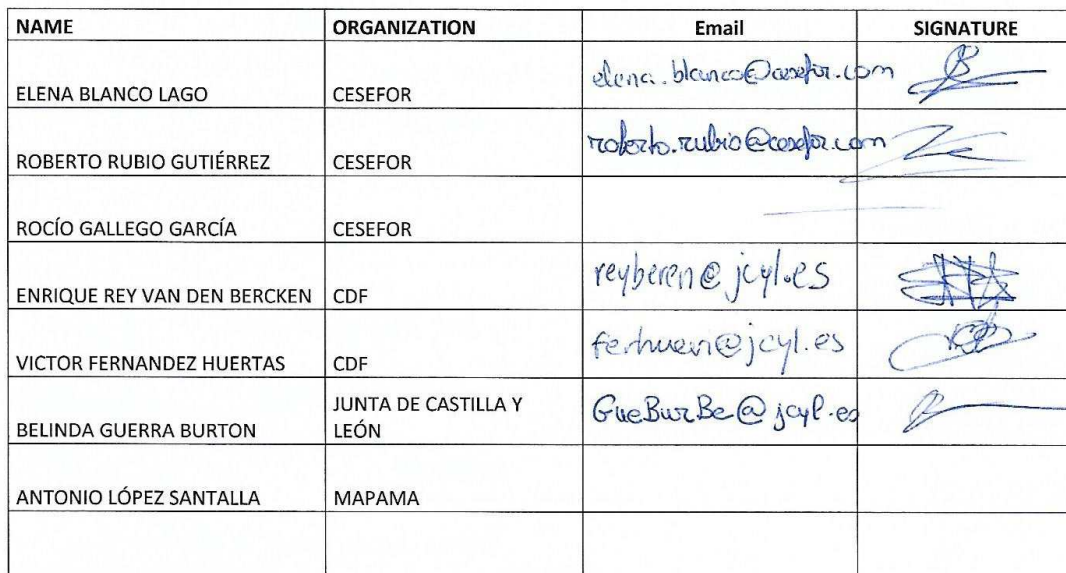 NAME ORGANIZATION Email SIGNATURE
ELENA BLANCO LAGO CESEFOR elena.blanco@cesefor.com
ROBERTO RUBIO GUTIÉRREZ CESEFOR roberto.rubio@cesefor.com
ROCÍO GALLEGO GARCÍA CESEFOR
ENRIQUE REY VAN DEN BERCKEN CDF reyberen@jcyl.es
VICTOR FERNANDEZ HUERTAS CDF ferhuevi@jcyl.es
JUNTA DE CASTILLA Y
BELINDA GUERRA BURTON LEÓN GueBurBe@jcyl.es
ANTONIO LÓPEZ SANTALLA MAPAMA